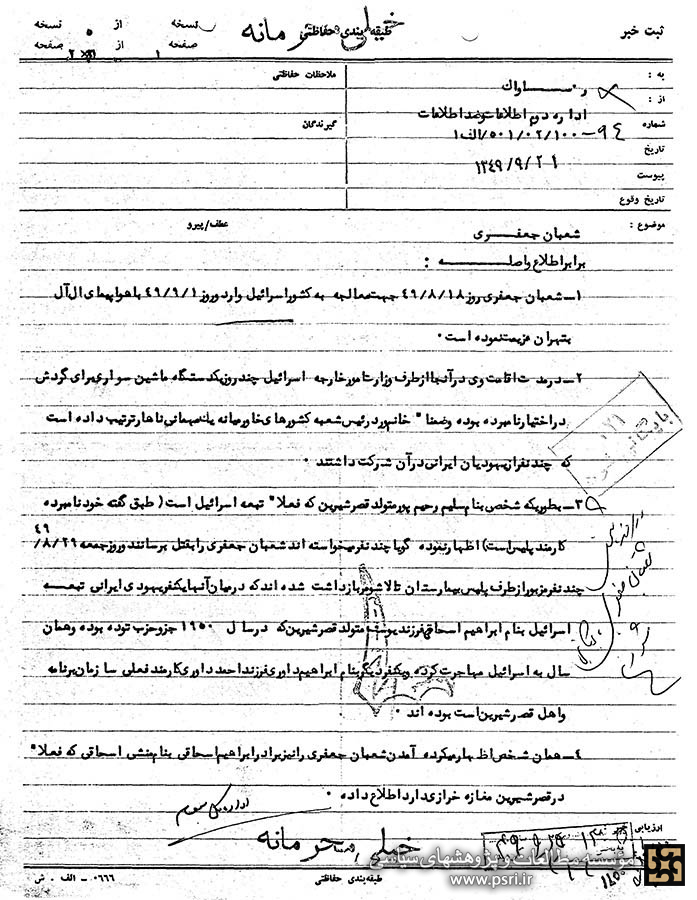 ثبت خبر
خیلی محرمانه
طبقه‌بندی حفاظتی
نسخه از نسخه ۵
صفحه ۱ از صفحه ۲
به : ساواک
ملاحظات حفاظتی
از : اداره دوم اطلاعات و ضد اطلاعات
گیرندگان
شماره
تاریخ ۱۳۴۹/۹/۲۱
پیوست
تاریخ وقوع
موضوع : شعبان جعفری
عطف/پیرو
برابر اطلاع واصله :
۱ــ شعبان جعفری روز ۴۹/۸/۱۸ جهت معالجه به کشور اسرائیل وارد و روز ۴۹/۹/۱ با هواپیمای ال آل
بتهران عزیمت نموده است ۰
۲ــ در مدت اقامت وی در آنجا از طرف وزارت امور خارجه اسرائیل چند روز یکدستگاه ماشین سواری برای گردش
در اختیار نامبرده بوده و ضمنا " خانم ور در رئیس شعبه کشورهای خاورمیانه یک میهمانی ناهار ترتیب داده است
که چند نفر از یهودیان ایرانی در آن شرکت داشتند ۰
۳ــ بطوریکه شخصی بنام سلیم رحیم پور متولد قصرشیرین که فعلا " تبعه اسرائیل است ( طبق گفته خود نامبرده
کارمند پلیس است ) اظهار نموده گویا چند نفر میخواسته اند شعبان جعفری را بقتل برسانند و روز جمعه ۴۹/۸/۲۹
چند نفر مزبور از طرف پلیس بیمارستان تالاشومر بازداشت شده اند که در میان آنها یکنفر یهودی ایرانی تبعه
اسرائیل بنام ابراهیم اسحاقی فرزند یوسف متولد قصرشیرین که در سال ۱۹۵۰ جزو حزب توده بوده و همان
سال به اسرائیل مهاجرت کرده و یکنفر دیگر بنام ابراهیم داوری فرزند احمد داوری کارمند فعلی سازمان برنامه
و اهل قصرشیرین است بوده اند ۰
۴ــ همان شخص اظهار میکرده آمدن شعبان جعفری را نیز برادر ابراهیم اسحاقی بنام منشی اسحاقی که فعلا "
در قصرشیرین مغازه خرازی دارد اطلاع داده ۰
اداره کل سوم
خیلی محرمانه
ارزیابی
موسسه مطالعات و پژوهشهای سیاسی
www.psri.ir
طبقه‌بندی حفاظتی
۰۶۶۶ - الف . ش